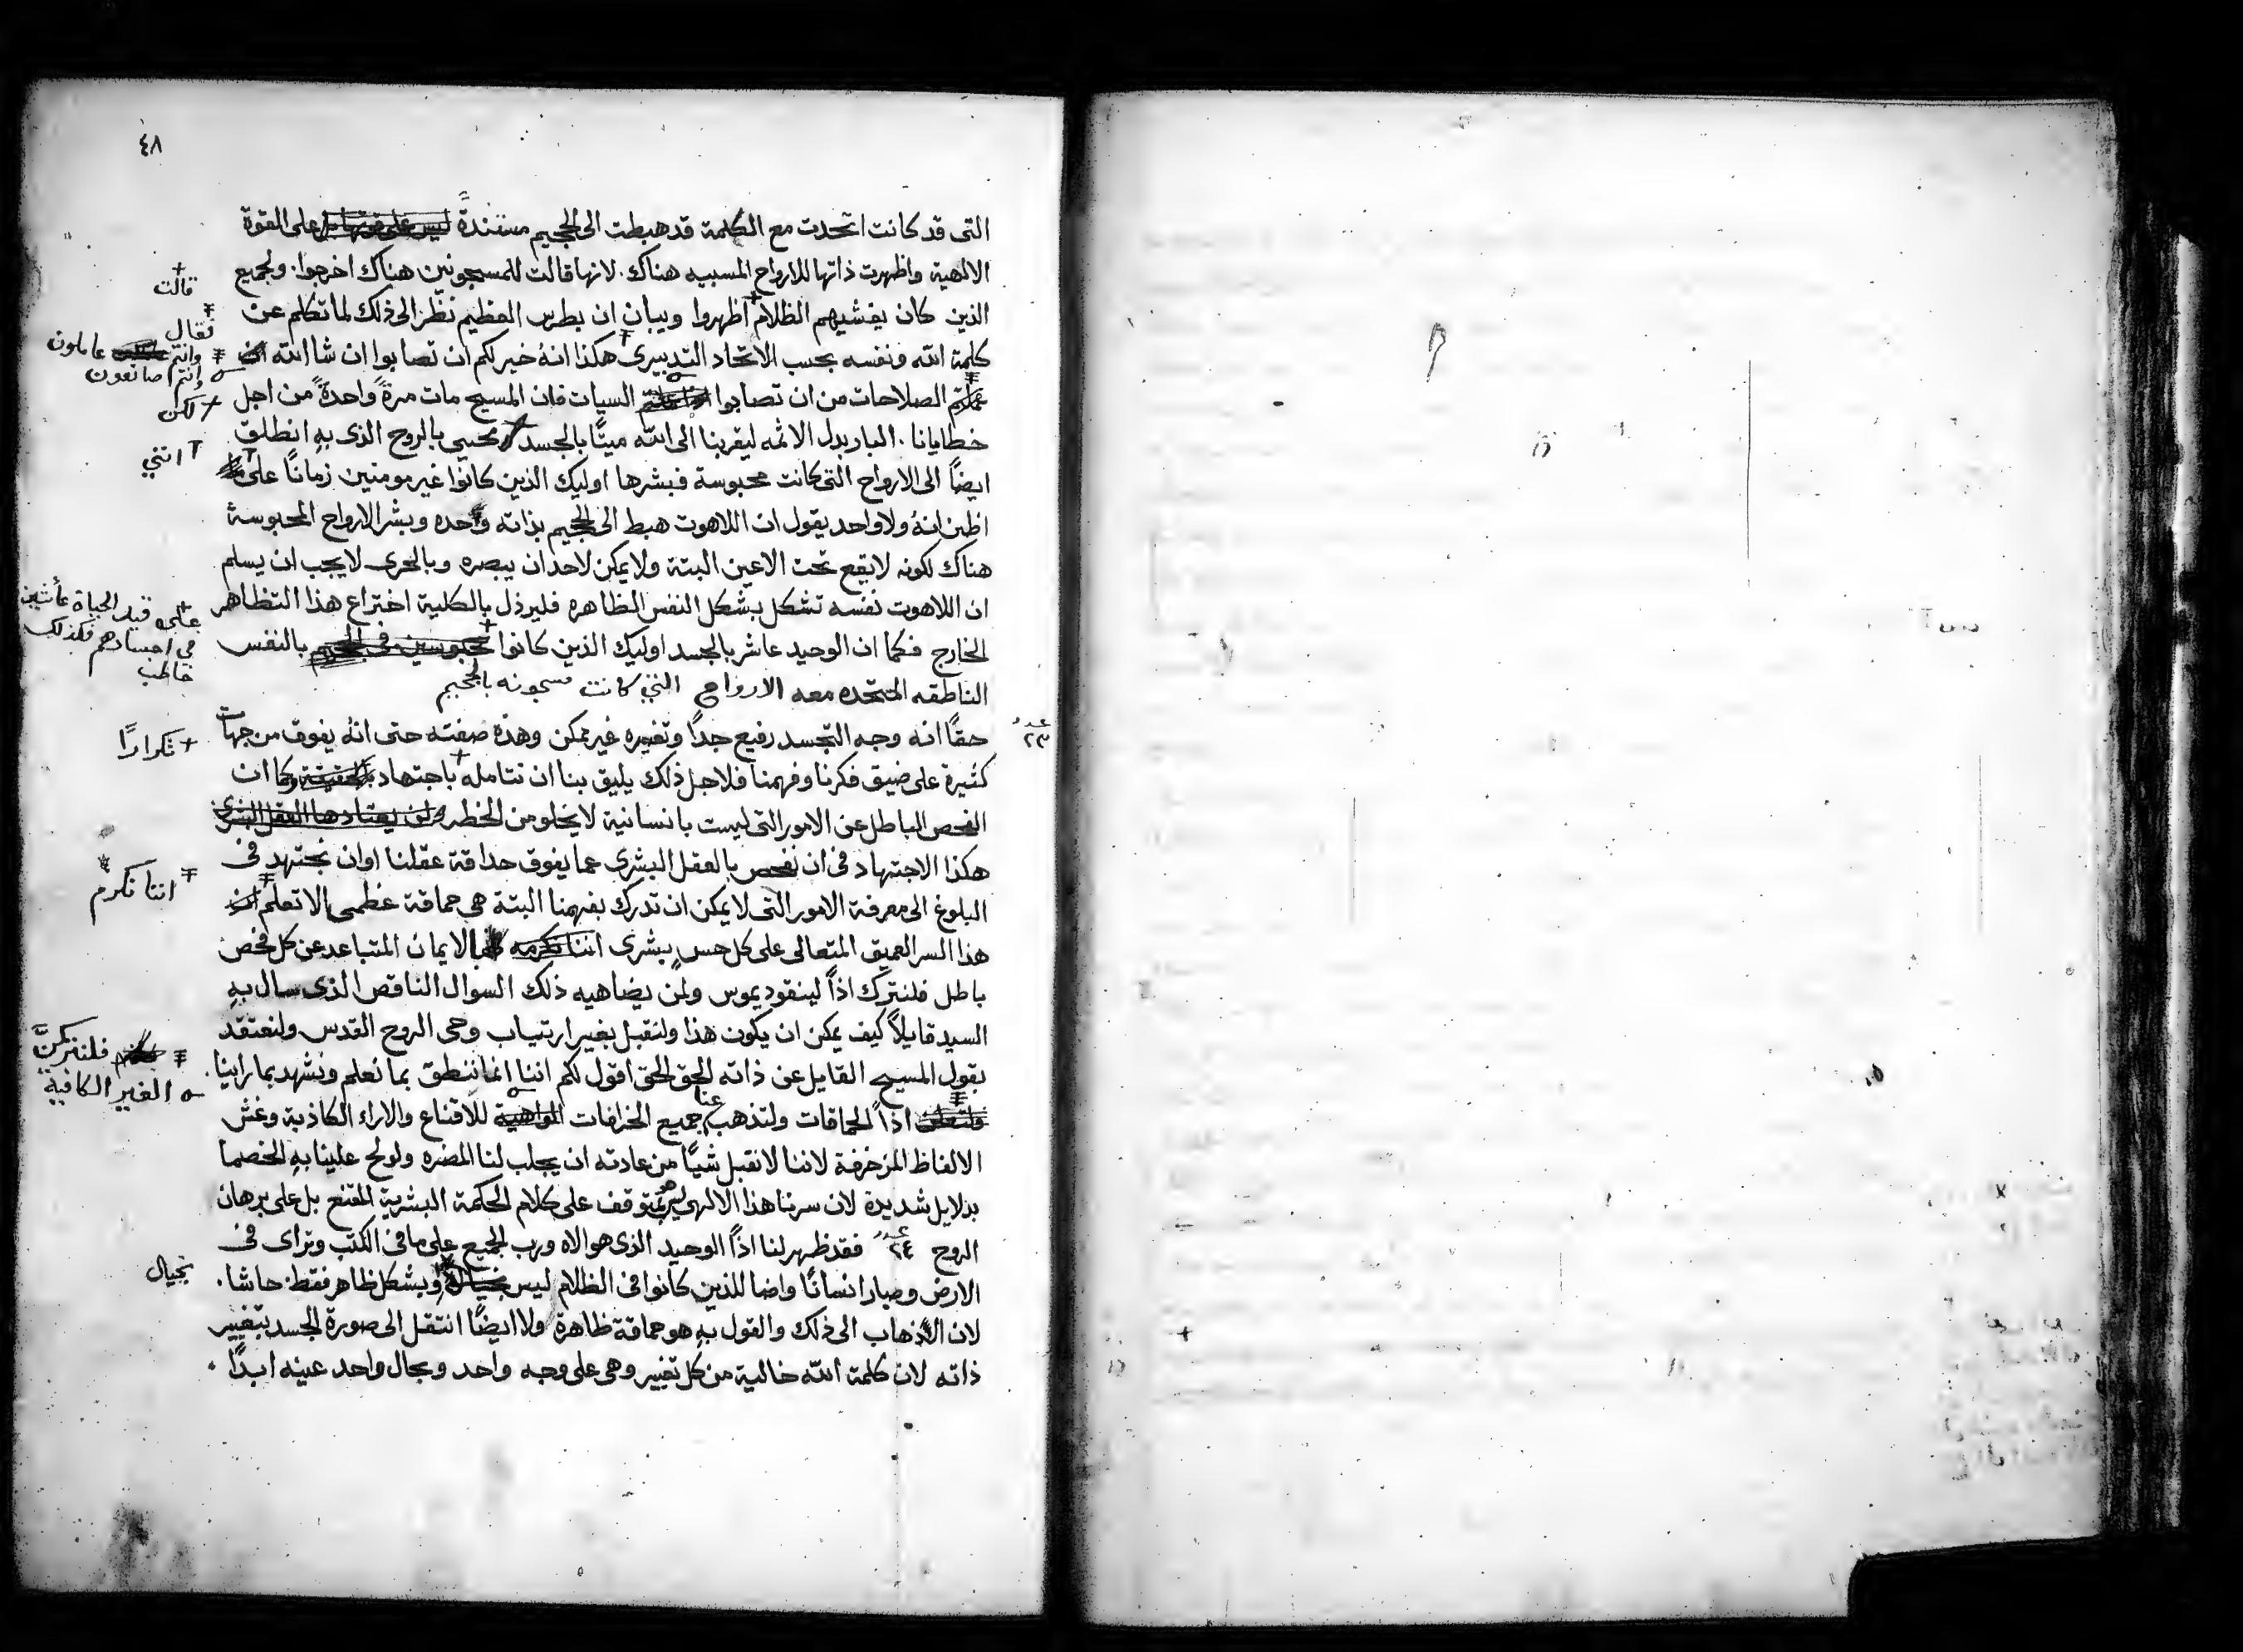 ٤٨
التى قد كانت اتحدت مع الكلمة قد هبطت الى الجحيم مستندةً ليس على قوتها بل على القوة
الالهية واظهرت ذاتها للارواح المسبيه هناك. لانها قالت للمسجونين هناك اخرجوا. ولجميع
الذين كان يغشيهم الظلام اظهروا ويبان ان بطرس العظيم نظر الى ذلك لما تكلم عن
كلمة الله ونفسه بحسب الاتحاد التدبيرى هكذا انهُ خير لكم ان تصابوا ان شا الله
عملتم الصلاحات من ان تصابوا السيات فان المسيح مات مرةً واحدةً من اجل
خطايانا. البار بدل الاثمه ليقربنا الى الله ميتًا بالجسد محيي بالروح الذى بهِ انطلق
ايضًا الى الارواح التى كانت محبوسة فبشرها اوليك الذين كانوا غير مومنين زمانًا على
اظن انهُ ولا واحد يقول ان اللاهوت هبط الى الجحيم بذاته وحده وبشر الارواح المحبوسة
هناك لكونه لا يقع تحت الاعين البتة ولا يمكن لاحد ان يبصره وبالحرى لا يجب ان يسلم
ان اللاهوت نفسه تشكل بشكل النفس الظاهره فليرذل بالكلية اختراع هذا التظاهر
الخارج فكما ان الوحيد عاشر بالجسد اوليك الذين كانوا محبوسين فى الجحيم بالنفس
الناطقه المتحده معه الارواح التي كانت مسجونه بالجحيم
حقًا انه وجه التجسد رفيع جدًا وتغييره غير ممكن وهذه صفته حتى انهُ يفوق من جهات
كثيرة على ضيق فكرنا وفهمنا فلاجل ذلك يليق بنا ان نتامله باجتهاد وكما ان
الفحص الباطل عن الامور التى ليست بانسانية لا يخلو من الخطر لن يعتادها العقل البشرى
هكذا الاجتهاد فى ان نفحص بالعقل البشرى عما يفوق حداقة عقلنا او ان نجتهد فى
البلوغ الى معرفة الامور التى لا يمكن ان تدرك بفهمنا البتة هى حماقة عظمى الا تعلم ان
هذا السر العميق المتعالى على كل حس بشرى اننا نكرمه بالايمان المتباعد عن كل فحص
باطل فلنترك اذًا لينقوديموس ولمن يضاهيه ذلك السوال الناقص الذى سال بهِ
السيد قايلاً كيف يمكن ان يكون هذا ولنقبل بغير ارتياب وحى الروح القدس ولنعتقد
بقول المسيح القايل عن ذاته الحق الحق اقول لكم اننا انما ننطق بما نعلم ونشهد بما راينا.
اذًا الحماقات ولتذهب عنا جميع الخرافات الواهية للاقناع والاراء الكاذبة وغش
الالفاظ المزخرفة لاننا لا نقبل شيًا من عادته ان يجلب لنا المضره ولو لح علينا بهِ الخصما
بدلايل شديدة لان سرنا هذا الالهى ليس هو بمتوقف على كلام الحكمة البشرية المقنع بل على برهان
الروح عدد ٢٤ فقد ظهر لنا اذًا الوحيد الذى هو الاه ورب الجميع على ما فى الكتب وتراى فى
الارض وصار انسانًا واضا للذين كانوا فى الظلام ليس بخيال وبشكل ظاهر فقط. حاشا.
لان الذهاب الى ذلك والقول بهِ هو حماقة ظاهرة ولا ايضًا انتقل الى صورة الجسد بتغيير
ذاته لان كلمة الله خالية من كل تغيير وهى على وجه واحد وبحال واحد عينه ابدًا.
قالت
فقال
وانتم عاملون
وانتم صانعون
لكن
اتني
على قيد الحياة عائشين
فى اجسادهم فكذلك
خاطب
عدد
٢٣
تكرارًا
اننا نكرم
فلنتركن
الغير الكافية
بخيال